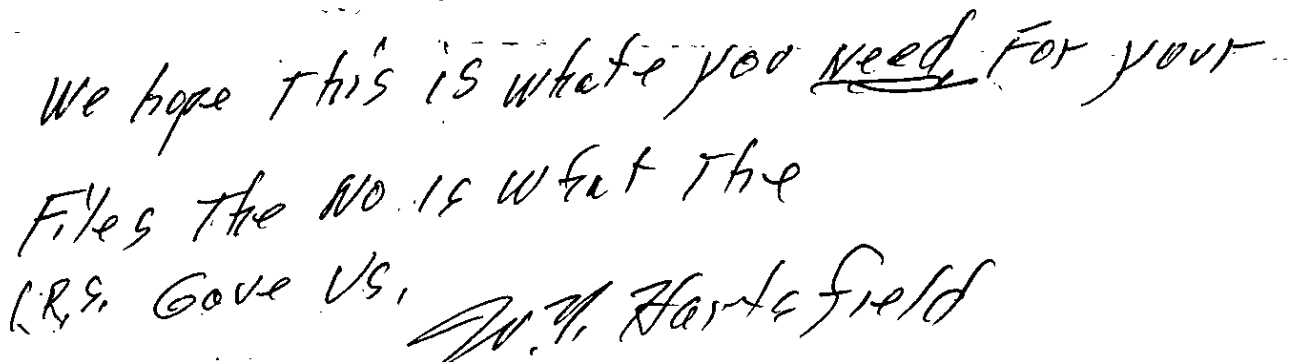 We hope This is whate you Need For your
Files The NO is what The
I.R.S. Gave US,
W.Y. Hartsfield